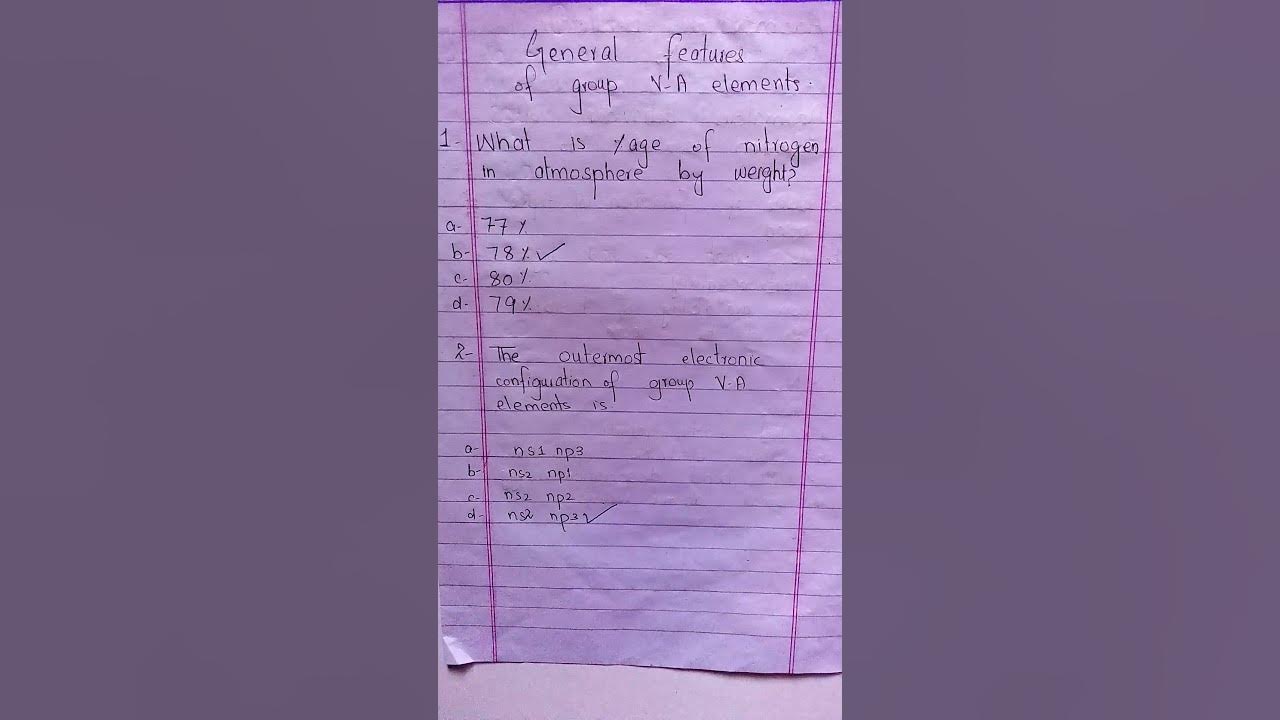 General features
of group V-A elements.
1- What is %age of nitrogen
in atmosphere by weight?
a- 77%
b- 78% ✓
c- 80%
d- 79%
2- The outermost electronic
configuration of group V-A
elements is
a- ns1 np3
b- ns2 np1
c- ns2 np2
d- ns2 np3 ✓